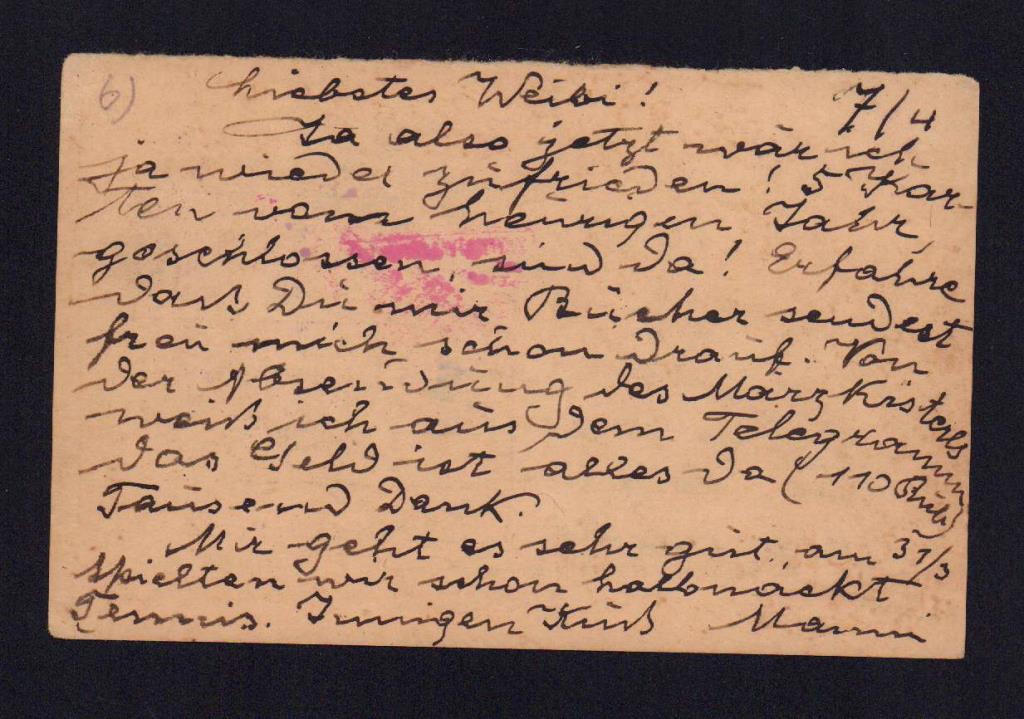 6)
Liebstes Weibi! 7/4
Ja also jetzt wär ich
ja wieder zufrieden! 5 Kar-
ten vom heurigen Jahr,
geschlossen, sind da! Erfahre
daß Du mir Bücher sendest
freu mich schon drauf. Von
der Absendung des Märzkisterls
weiß ich aus dem Telegramm
das Geld ist alles da (110 Rub)
Tausend Dank.
Mir geht es sehr gut, am 31/3
spielten wir schon halbnackt
Tennis. Innigen Kuß Manni